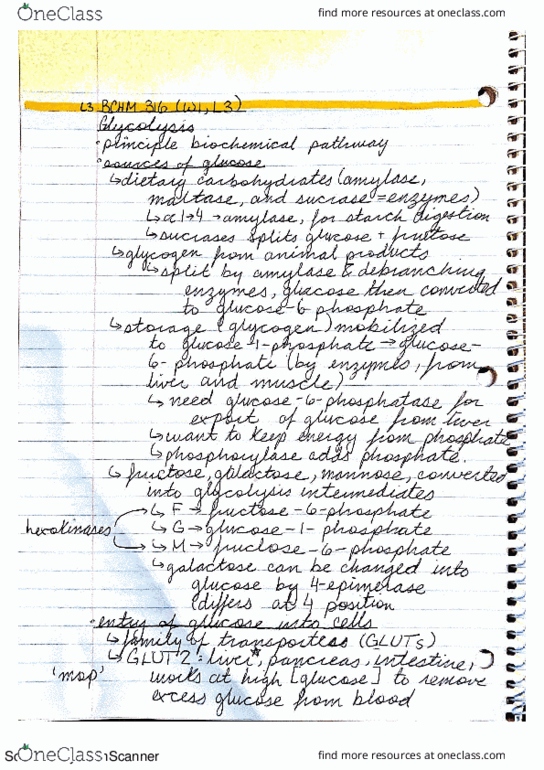 OneClass
find more resources at oneclass.com
L3 BCHM 316 (W1, L3)
Glycolysis
•principle biochemical pathway
•sources of glucose
↳dietary carbohydrates (amylase,
maltase, and sucrase = enzymes)
↳α1→4 → amylase, for starch digestion
↳sucrases splits glucose + fructose
↳glycogen from animal products
↳split by amylase & debranching
enzymes, glucose then converted
to glucose-6-phosphate
↳storage (glycogen) mobilized
to glucose-1-phosphate → glucose-
6-phosphate (by enzymes, from
liver and muscle)
↳need glucose-6-phosphatase for
export of glucose from liver
↳want to keep energy from phosphate
↳phosphorylase adds phosphate.
↳fructose, galactose, mannose, converted
into glycolysis intermediates
↳F → fructose-6-phosphate
hexokinases ↳G → glucose-1-phosphate
↳M → fructose-6-phosphate
↳galactose can be changed into
glucose by 4-epimerase
(differs at 4 position
•entry of glucose into cells
↳family of transporters (GLUTs)
↳GLUT2: liver*, pancreas, intestine,
'mop' works at high [glucose] to remove
excess glucose from blood
OneClass
Scanner
find more resources at oneclass.com